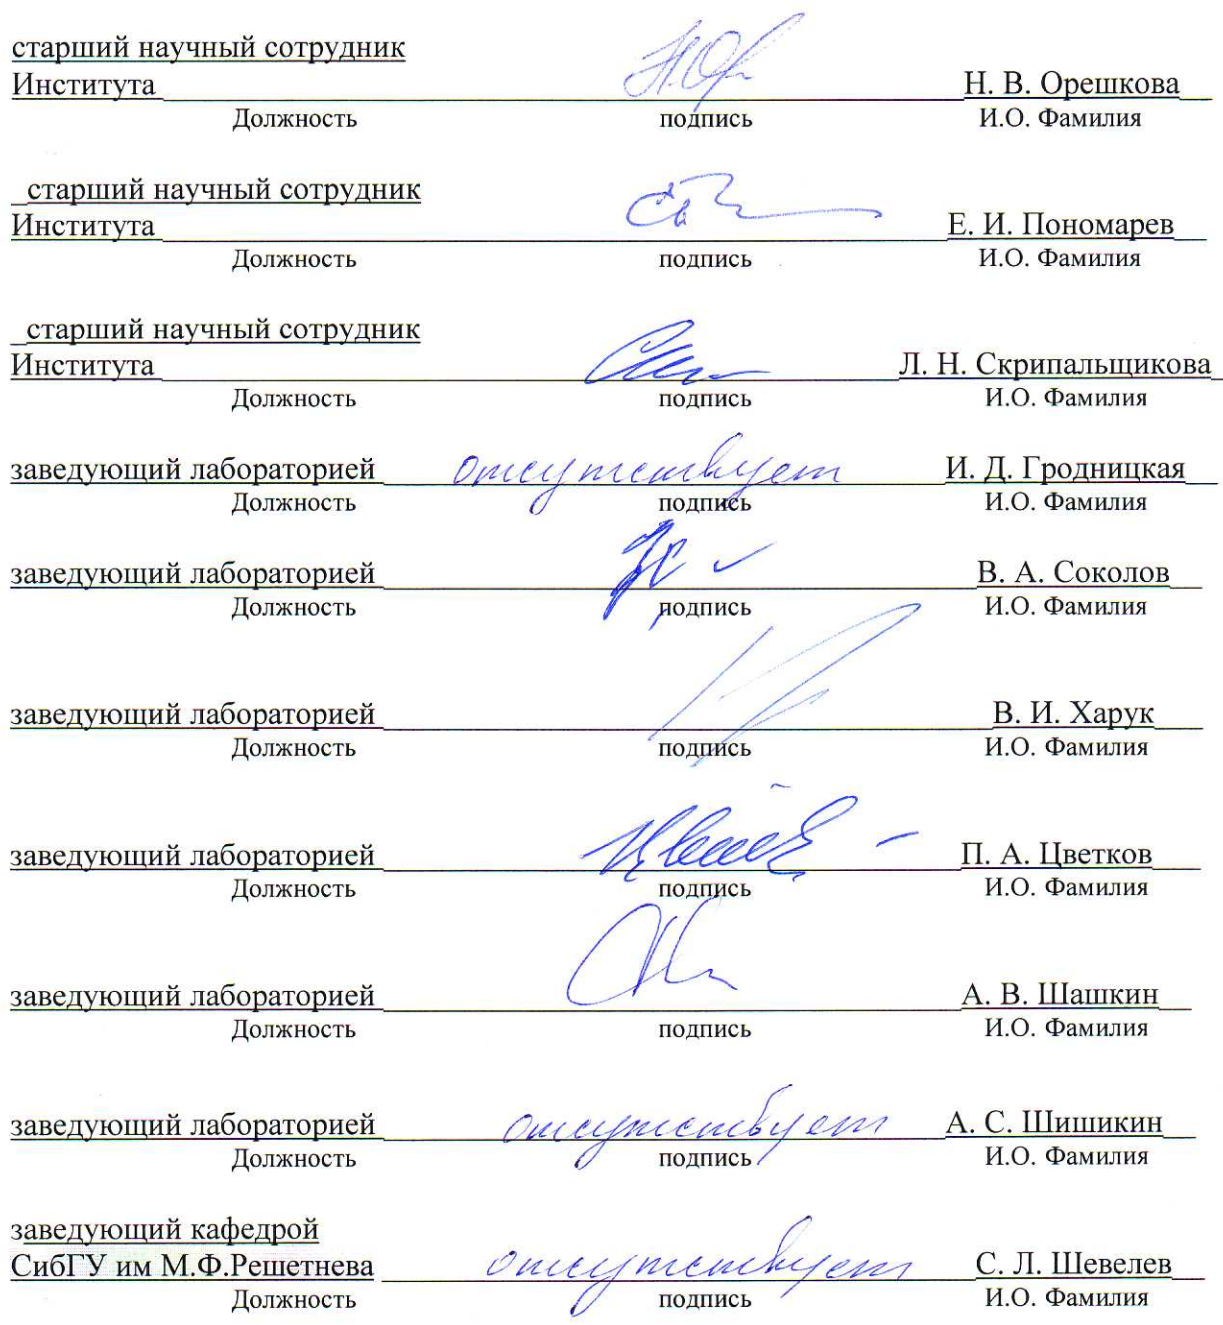 старший научный сотрудник
Института Н. В. Орешкова
Должность подпись И.О. Фамилия
старший научный сотрудник
Института Е. И. Пономарев
Должность подпись И.О. Фамилия
старший научный сотрудник
Института Л. Н. Скрипальщикова
Должность подпись И.О. Фамилия
заведующий лабораторией отсутствует И. Д. Гродницкая
Должность подпись И.О. Фамилия
заведующий лабораторией В. А. Соколов
Должность подпись И.О. Фамилия
заведующий лабораторией В. И. Харук
Должность подпись И.О. Фамилия
заведующий лабораторией П. А. Цветков
Должность подпись И.О. Фамилия
заведующий лабораторией А. В. Шашкин
Должность подпись И.О. Фамилия
заведующий лабораторией отсутствует А. С. Шишикин
Должность подпись И.О. Фамилия
заведующий кафедрой
СибГУ им М.Ф.Решетнева отсутствует С. Л. Шевелев
Должность подпись И.О. Фамилия